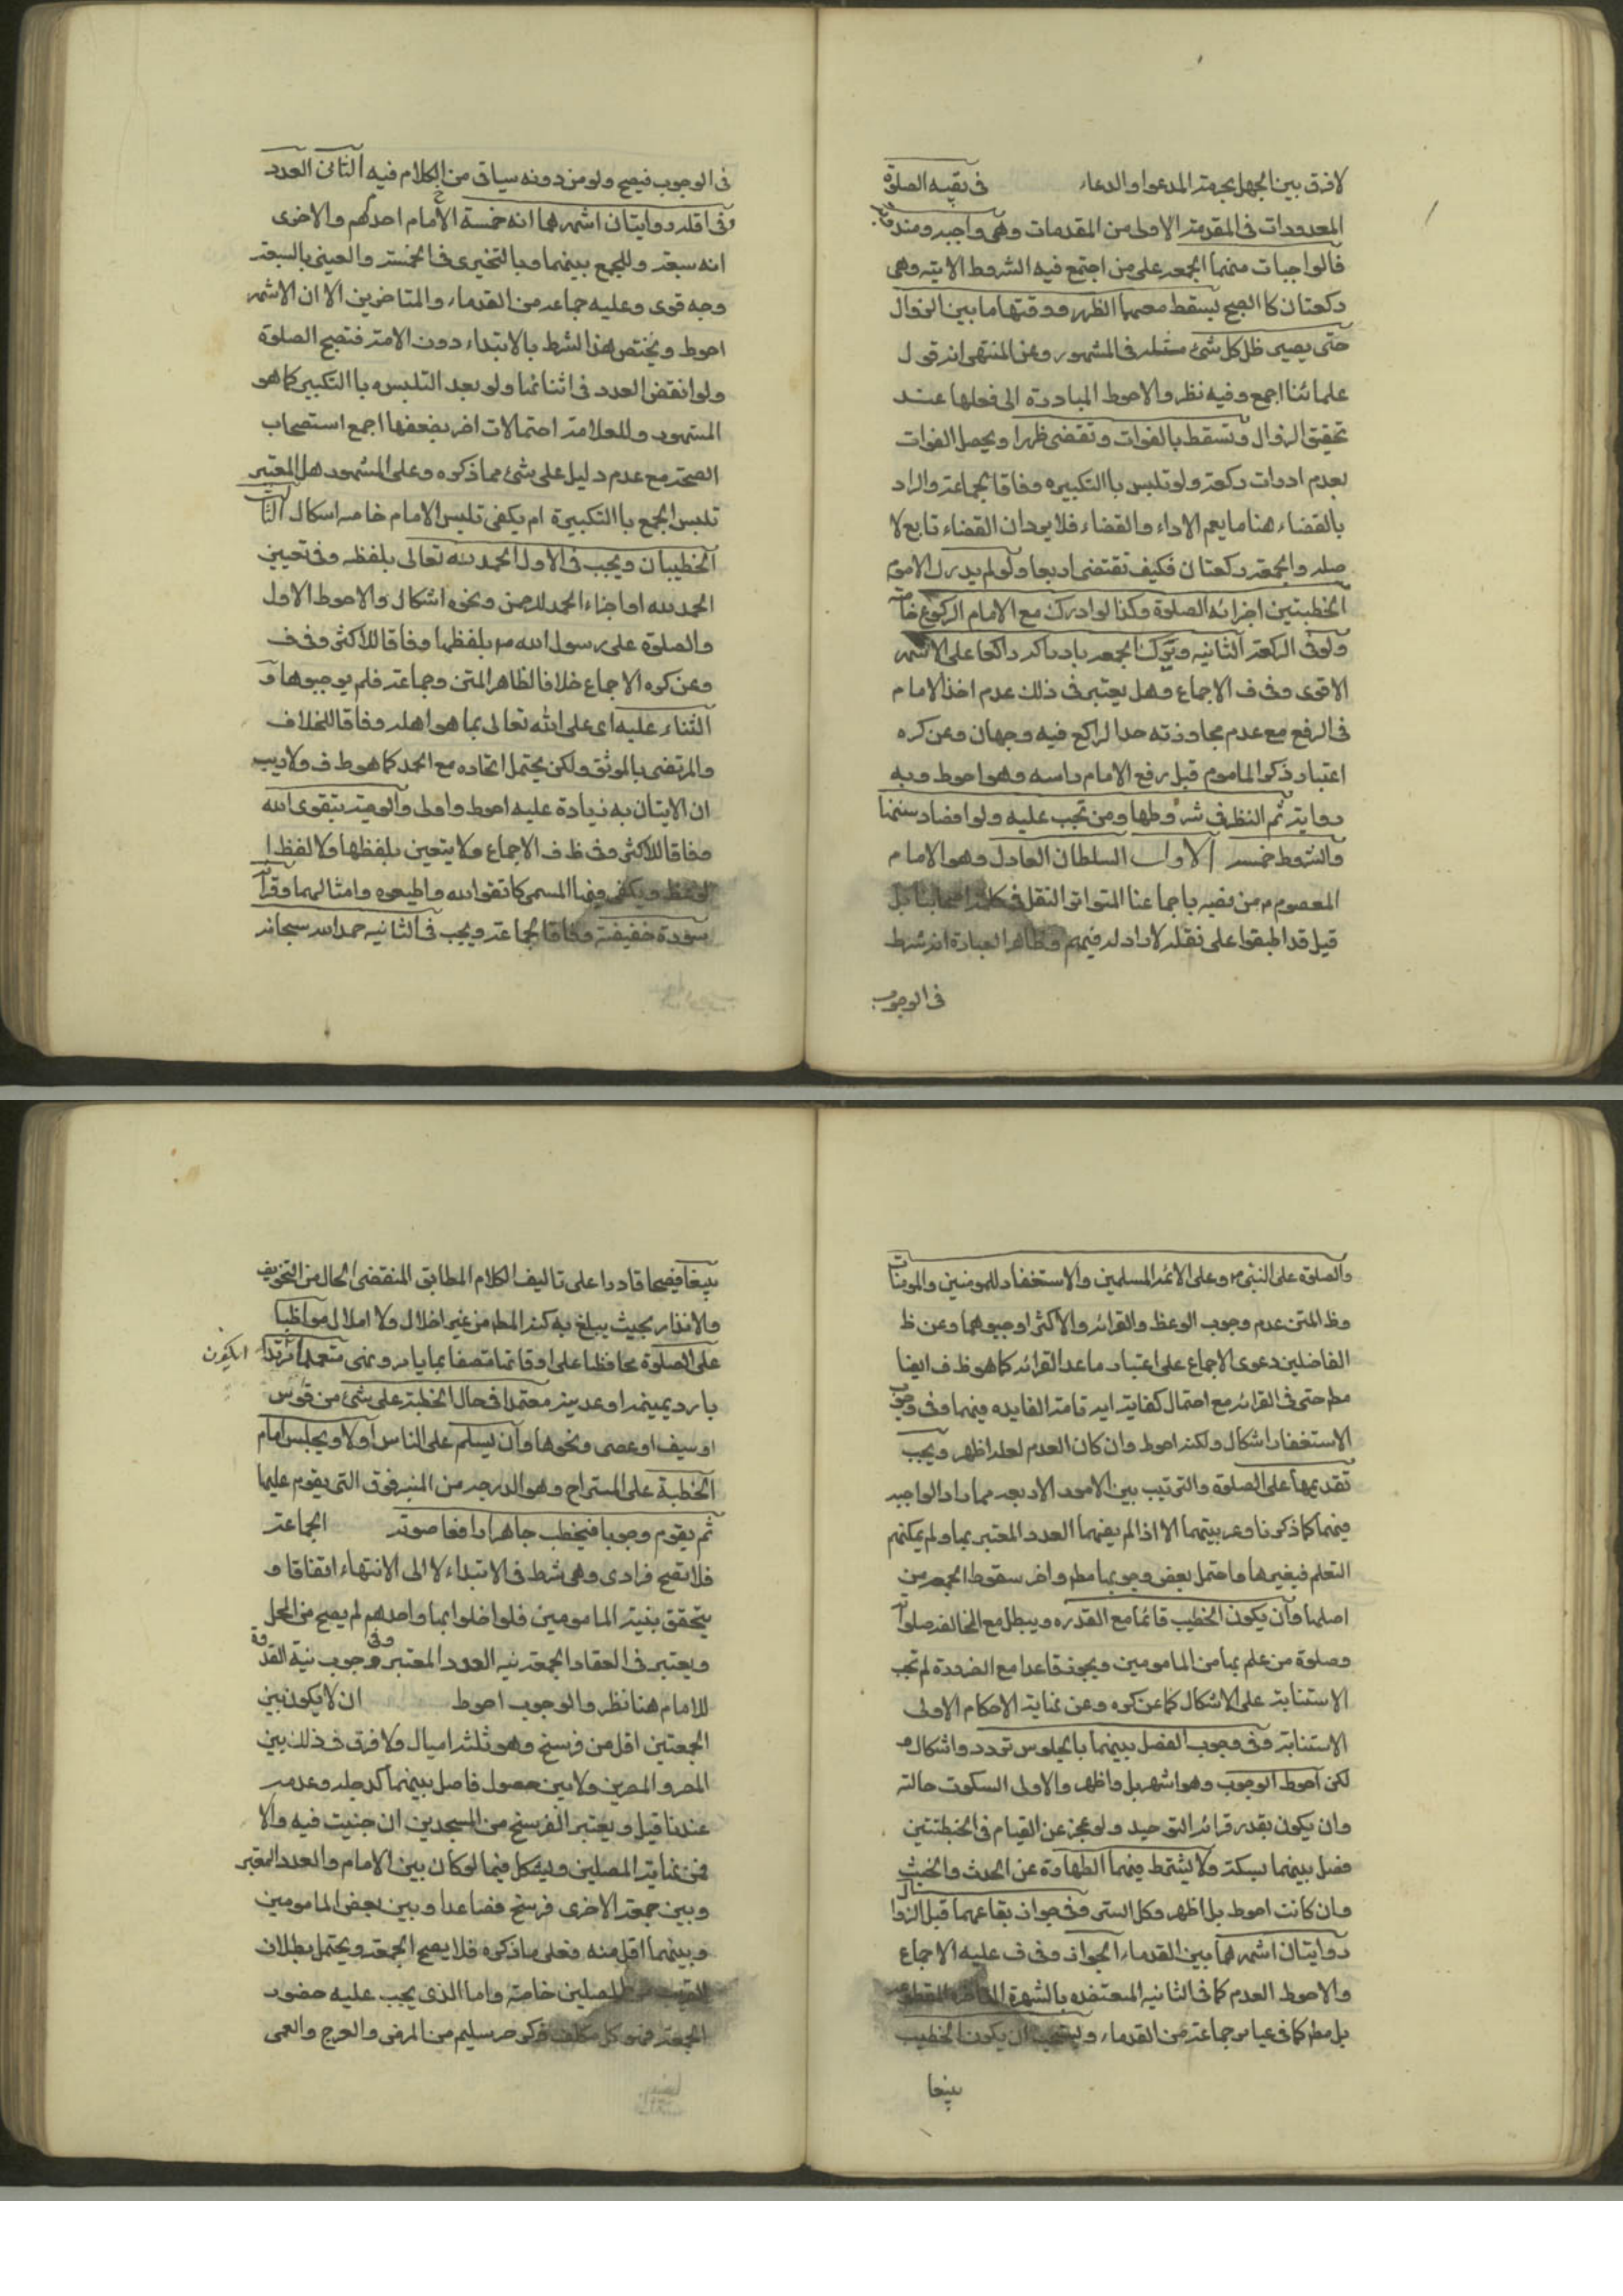 لا فرق بين الجهل بجهة المدعوا والدعاء في بقيه الصلوة
المعدودات في المقدمة الاولى من المقدمات وهي واجبه ومندوبة
فالواجبات منها الجمعه على من اجتمع فيه الشروط الاتيه وهي
ركعتان كا الصبح يسقط معهما الظهر ووقتها ما بين الزوال
حتى يصير ظل كل شئ مثله في المشهور وعن المنتهى انه قول
علمائنا اجمع وفيه نظر والاحوط المبادرة الى فعلها عند
تحقيق الزوال وتسقط بالفوات وتقضى ظهرا ويحصل الفوات
بعدم ادراك ركعة ولو تلبس باالتكبيره وفاقا لجماعة والمراد
بالقضاء هنا ما يعم الاداء والقضاء فلا يرد ان القضاء تابع لا
صله والجمعة ركعتان فكيف تقتضى اربعا ولو لم يدرك الاموم
الخطبتين اجزائه الصلوة وكذا لو ادرك مع الامام الركوع خاصة
ولو في الركعة الثانيه ويدرك الجمعه بادراكه راكعا على الاشهر
الاقوى وفي ف الاجماع وهل يعتبر في ذلك عدم اخذ الامام
في الرفع مع عدم مجاوزته حد الراكع فيه وجهان وعن كره
اعتبار ذكر الماموم قبل رفع الامام راسه وهو احوط وبه
رواية ثم النظر في شروطها ومن تجب عليه ولواحقها وسننها
والشروط خمسه الاول السلطان العادل وهو الامام
المعصوم م من نصبه باجماعنا المتواتر النقل في كلام اصحابنا بل
قيل قد اطبقوا على نقله لا راد له فيهم وظاهر العبارة انه شرط
في الوجوب
في الوجوب فيصح ولو من دونه سياتي من الكلام فيه الثاني العدد
وفي اقله روايتان اشهرهما انه خمسة الامام احدهم والاخرى
انه سبعة وللجمع بينهما وبالتخيري في الخمسة والعيني بالسبعة
وجه قوى وعليه جماعه من القدماء والمتاخرين الا ان الاشهر
احوط ويختص هذا الشرط بالابتداء دون الامة فتصح الصلوة
ولو انقض العدد في اثنائها ولو بعد التلبس باالتكبير كما هو
المشهور وللعلامة احتمالات اخر يضعفها اجمع استصحاب
الصحة مع عدم دليل على شئ مما ذكره وعلى المشهور هل المعتبر
تلبس الجمع باالتكبيرة ام يكفى تلبس الامام خاصه اشكال الثا
الخطبتان ويجب في الاولى الحمد لله تعالى بلفظه وفي تعيين
الحمد لله او اجزاء الحمد للرحمن ونحوه اشكال والاحوط الاول
والصلوة على رسول الله ص بلفظها وفاقا للاكثر وفي ف
وعن كره الاجماع خلافا لظاهر المتن وجماعة فلم يوجبوها و
الثناء عليه اى على الله تعالى بما هو اهله وفاقا للخلاف
والمرتضى بالموثق ولكن يحتمل اتحاده مع الحمد كما هو ط ف ولا ريب
ان الاتيان به زيادة عليه احوط واولى والوصية بتقوى الله
وفاقا للاكثر وفي ظ ف الاجماع ولا يتعين بلفظها ولا لفظ ا
لوعظ ويكفى فيها المسمى كاتقوا الله واطيعوه وامثالهما وقرآ
سورة خفيفة وفاقا لجماعة ويجب في الثانيه حمد الله سبحانه
والصلوة على النبي ص وعلى الائمة المسلمين والاستغفار للمومنين والمومنات
وظ المتن عدم وجوب الوعظ والقرائه والاكثر اوجبوهما وعن ظ
الفاضلين دعوى الاجماع على اعتبار ما عدا القرائه كما هو ظ ف ايضا
مط حتى في القرائه مع احتمال كفاية ايه تامة الفايده فيهما وفي وجوب
الاستغفار اشكال ولكنه احوط وان كان العدم لعله اظهر ويجب
تقديمها على الصلوة والترتيب بين الامور الاربعه مماداد الواجبه
فيهما كما ذكرنا وعربيتهما الا اذا لم يفهما العدد المعتبر بها ولم يمكنهم
التعلم فبغيرها واحتمل بعض وجوبها مط واخر سقوط الجمعه من
اصلها وان يكون الخطيب قائما مع القدره ويبطل مع المخالفه صلوته
وصلوة من علم بها من المامومين ويجوز قاعدا مع الضرورة لم تجب
الاستنابة على الاشكال كما عن كره وعن نهاية الاحكام الاولى
الاستنابة وفي وجوب الفصل بينهما بالجلوس تردد واشكال و
لكن احوط الوجوب وهو اشهر بل واظهر والاولى السكوت حالته
وان يكون بقدر قرائه التوحيد ولو عجز عن القيام في الخطبتين
فصل بينهما بسكتة ولا يشترط فيهما الطهارة عن الحدث والخبث
وان كانت احوط بل اظهر وكل الستر وفي جواز ايقاعهما قبل الزوال
روايتان اشهرهما بين القدماء الجواز وفي ف عليه الاجماع
والاحوط العدم كما في الثانيه المعتضده بالشهرة
بل مط كما في عبائر جماعة من القدماء ويستحب ان يكون الخطيب
بليغا
بليغا فصيحا قادرا على تاليف الكلام المطابق المنقضى الحال من التخويف
والانذار بحيث يبلغ به كنه المط من غير اخلال ولا املال مواظبا
على الصلوة محافظا على اوقاتها متصفا بما يامر وينهى متعمما مرتديا
ببرد يمينه او عدنيه معتمدا في حال الخطبة على شئ من قوس
او سيف او عصى ونحوها وان يسلم على الناس اولا ويجلس امام
الخطبة على المستراح وهو الدرجه من المنبر فوق التي يقوم عليها
ثم يقوم وجوبا فيخطب جاهرا رافعا صوته الجماعة
فلا تصح فرادى وهي شرط في الابتداء لا الى الانتهاء اتفاقا و
يتحقق بنية المامومين فلو اخلوا بها واحدهم لم يصح من المخل
ويعتبر في انعقاد الجمعة نيه العدد المعتبر وفي وجوب نية القدوة
للامام هنا نظر والوجوب احوط ان لا يكون بين
الجمعتين اقل من فرسخ وهو ثلثه اميال ولا فرق في ذلك بين
المصر والمصرين ولا بين حصول فاصل بينهما كدجله وعدمه
عندنا قيل ويعتبر الفرسخ من المسجدين ان جنيت فيه والا
فمن نهاية المصلين ويشكل فيما لو كان بين الامام والعدد المعتبر
وبين جمعة الاخرى فرسخ فصاعدا وبين بعض المامومين
وبينهما اقل منه فعلى ما ذكره فلا يصح الجمعة ويحتمل بطلان
المصلين خاصة واما الذى يجب عليه حضور
الجمعة فهو كل مكلف ذكر حر سليم من المرض والعرج والعمى